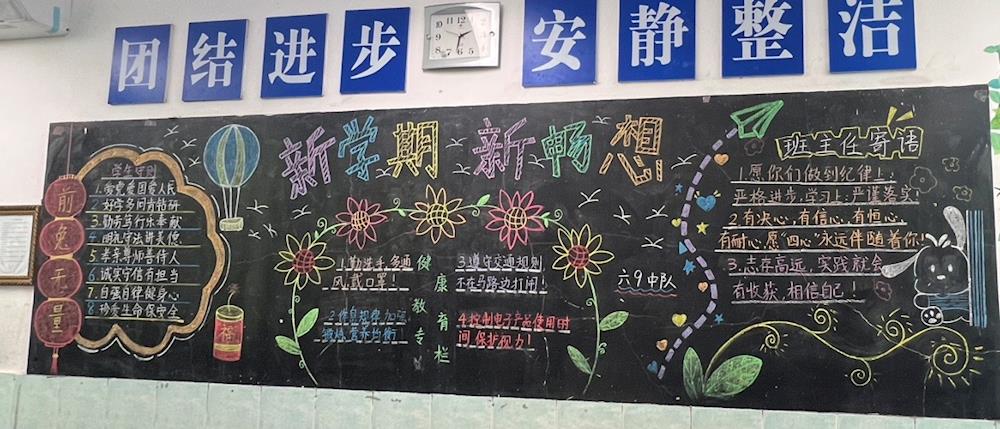 团结进步 安静整洁
新学期 新畅想
前兔无量
学生守则
1.爱党爱国爱人民
2.好学多问肯钻研
3.勤劳笃行乐奉献
4.明礼守法讲美德
5.孝亲尊师善待人
6.诚实守信有担当
7.自强自律健身心
8.珍爱生命保安全
福
健康教育专栏
1.勤洗手,多通
风,戴口罩!
2.作息规律,加强
锻炼,营养均衡!
3.遵守交通规则
不在马路边打闹!
4.控制电子产品使用时
间,保护视力!
六9中队
班主任寄语
1.愿你们做到纪律上:
严格进步,学习上:严谨落实
2.有决心,有信心,有恒心,
有耐心,愿“四心”永远伴随着你!
3.志存高远,实践就会
有收获,相信自己!